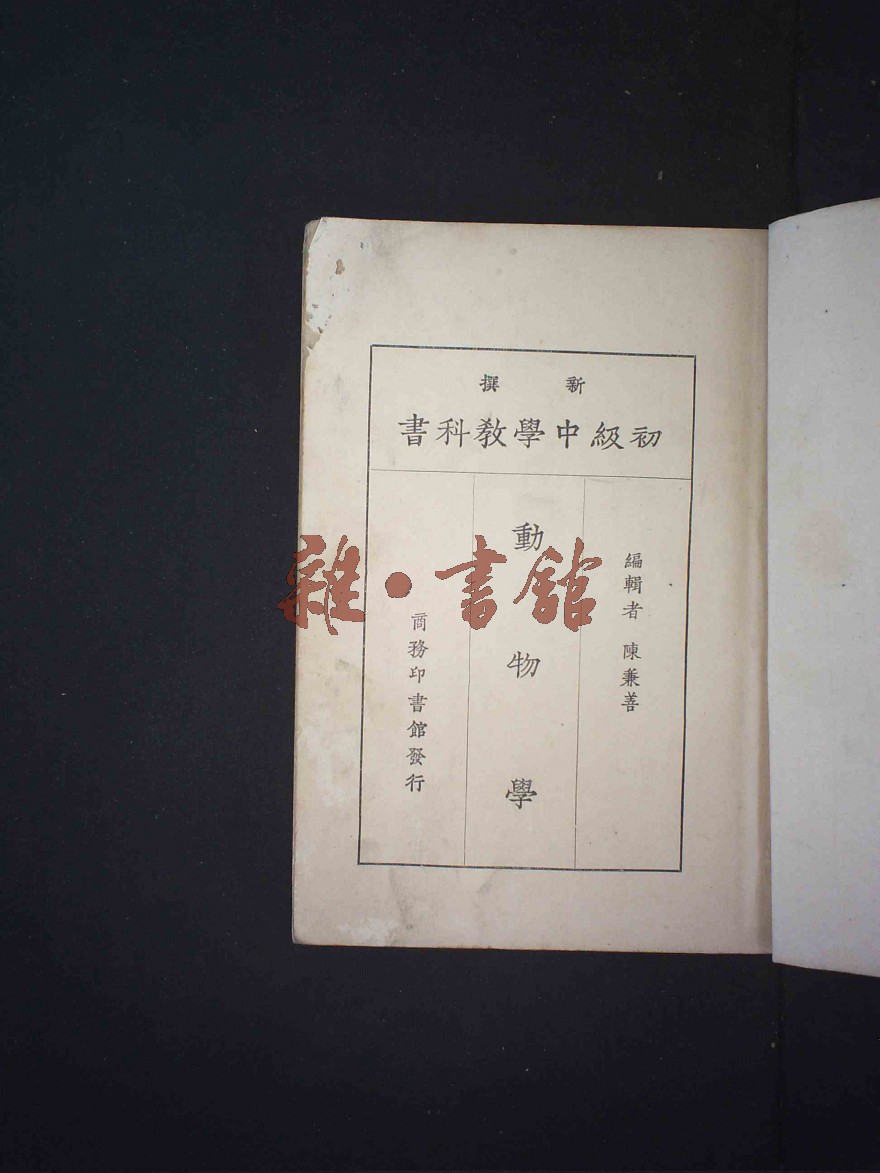 新撰
初級中學教科書
編輯者 陳兼善
動物學
商務印書館發行
雜·書館